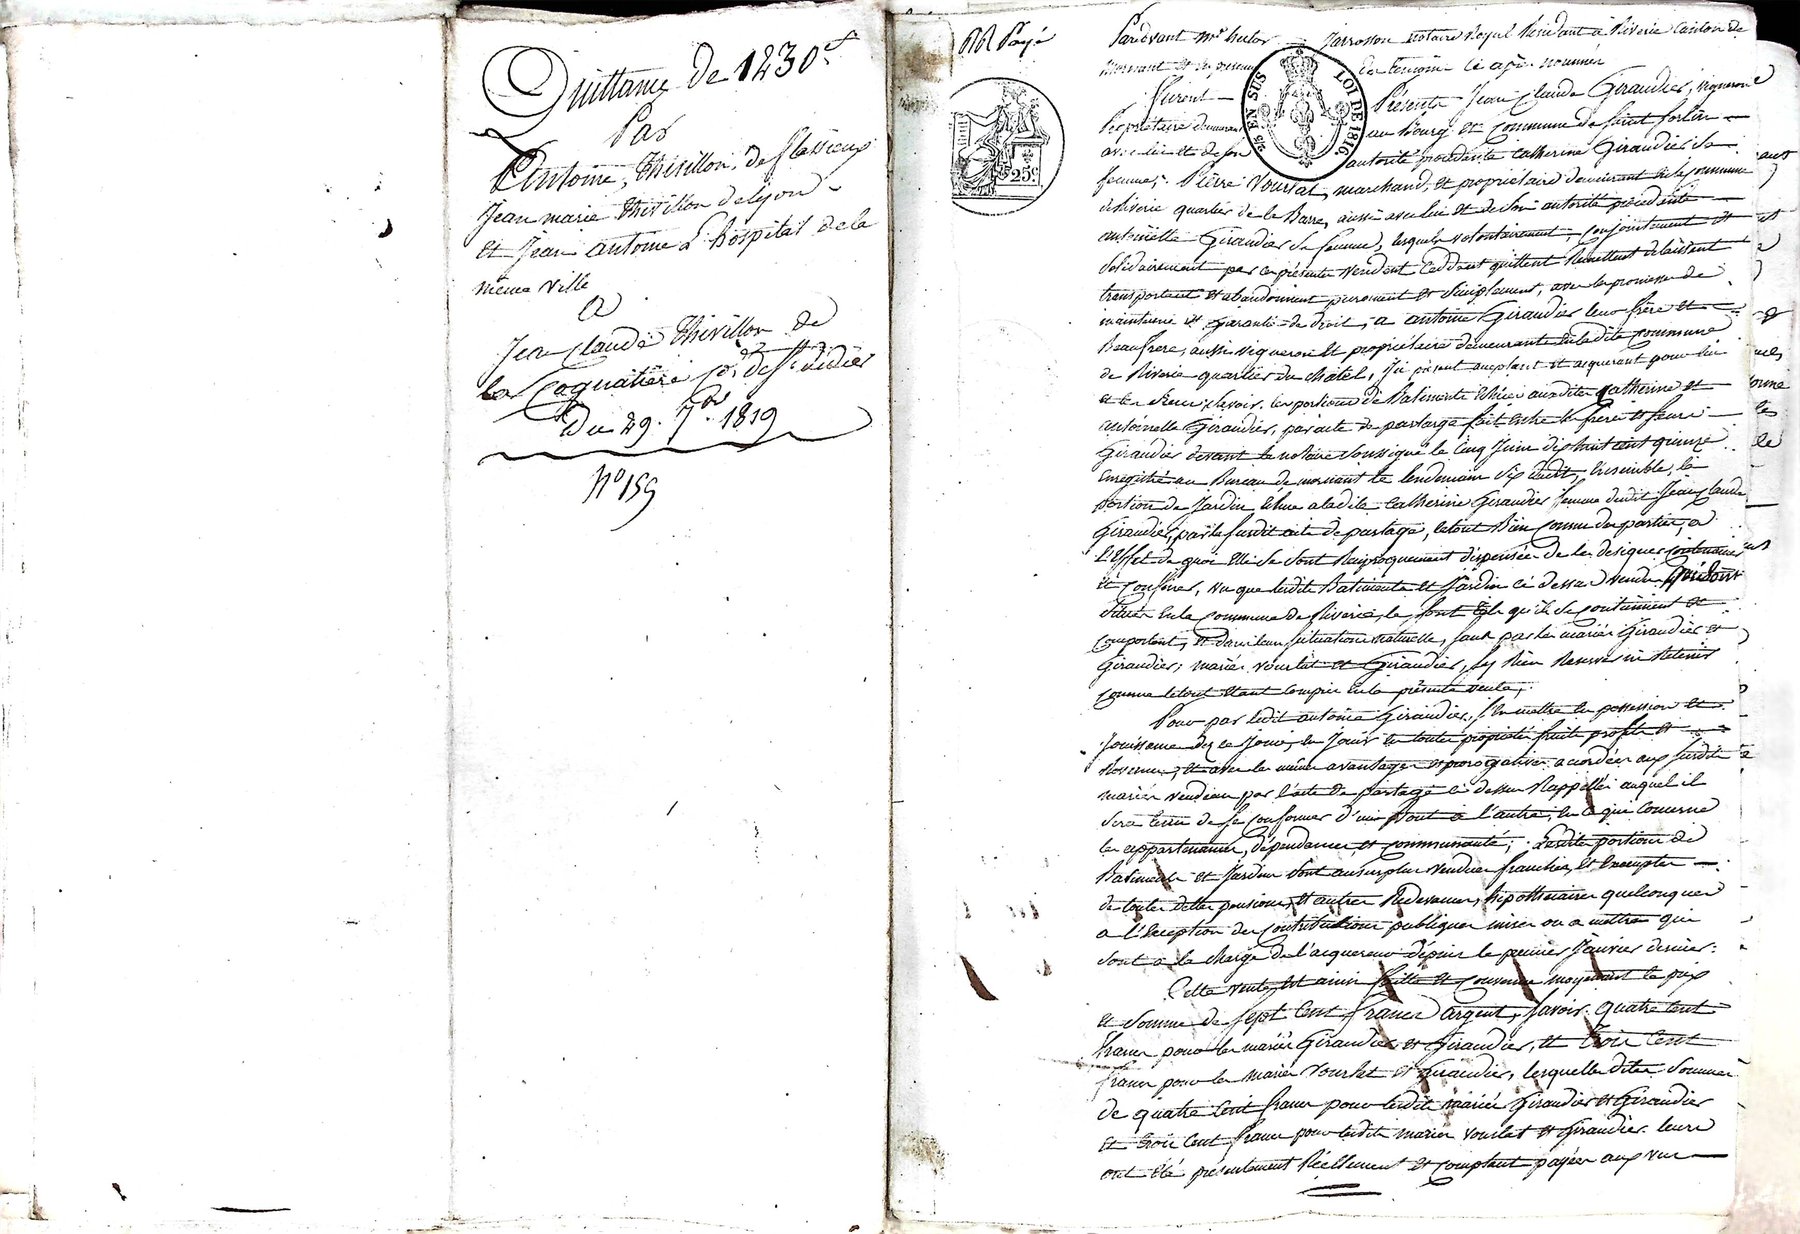 Quittance de 1230f.
Par
Antoine Thivillon, de flassieux
Jean marie Thivillon de lyon
et Jean antoine L'hospital de la
meme ville
a
Jean Claude Thivillon de
la Coquatiere Cne. de St. didier
Du 29. 7bre 1819
N° 159
Payé
25c
25 EN SUS
LOI DE 1816
Pardevant Me hector Jarrosson Notaire Royal Residant a Riverie Canton de
mornant et en presence des temoins ci après nommés
furent Présents Jean Claude Giraudier, vigneron
Propriétaire demeurant au Bourg et Commune de Saint Sorlin
avec lui et de son autorité procedente Catherine Giraudier Sa
femme; Pierre Vourlat, marchand, et propriétaire demeurant en la Commune
de Riverie quartier de la Barre, aussi avec lui et de Son autorité procedente
antoinette Giraudier Sa femme, lesquels volontairement, conjointement et
Solidairement par ces présentes vendent Cèdent quittent Remettent délaissent
transportent et abandonnent purement et Simplement, avec les promesses de
maintenue et garantie de droit, a antoine Giraudier leur frère et
Beaufrere, aussi vigneron et propriétaire demeurant en la dite Commune
de Riverie quartier du Chatel, ici présent acceptant et acquerant pour lui
et les Siens; Savoir, les portions de Batiments échues auxdites Catherine et
antoinette Giraudier, par acte de partage fait entre les frères et Seurs
Giraudier devant le notaire Soussigné le Cinq Juin dix huit cent quinze
Enregistré au Bureau de mornant le lendemain Six dudit, Ensemble, la
portion de Jardin échue a ladite Catherine Giraudier femme dudit Jean Claude
Giraudier, par le Susdit acte de partage, le tout Bien Connu des parties, a
L'Effet de quoi Elles Se Sont Reciproquement dispensées de les designer
et Confiner, vu que lesdits Batiments et Jardin ci dessus vendus qui Sont
Situés En la Commune de Riverie, le Sont tels qu'ils Se contiennent et
Comportent, et dans leur Situation naturelle, Sans par les mariés Giraudier et
Giraudier; mariés Vourlat et Giraudier, Sy Rien Reserver ni Retenir
Comme letout Etant Compris En la présente vente,
Pour par ledit antoine Giraudier, S'En mettre En possession et
Jouissance dez ce Jour, En Jouir En toute propriété fruits profits et
Revenus, et avec les mêmes avantages et prerogatives accordées aux Susdits
mariés vendeurs par l'acte de partage ci dessus Rappellé auquel il
Sera tenu de Se Conformer d'un Bout à l'autre, En ce qui Concerne
les appartenances, dépendances et Communauté; Lesdites portions de
Batiments et Jardin Sont au Surplus vendues franches, et Exemptes
de toutes dettes pensions, et autres Redevances, hipothécaires quelconques
a l'Exception des Contributions publiques mises ou a mettre qui
Sont a la Charge de l'acquereur depuis le premier Janvier dernier:
Cette vente, Est ainsi faitte et Convenue moyenant le prix
et Somme de Sept Cent francs argent, Savoir. quatre Cent
francs pour les mariés Giraudier et Giraudier, et Trois Cent
francs pour les mariés Vourlat et Giraudier, lesquelles dites Sommes
de quatre Cent francs pour lesdits mariés Giraudier et Giraudier
et trois Cent francs pour lesdits mariés Vourlat et Giraudier leurs
ont été présentement Réellement et comptant payées aux vus